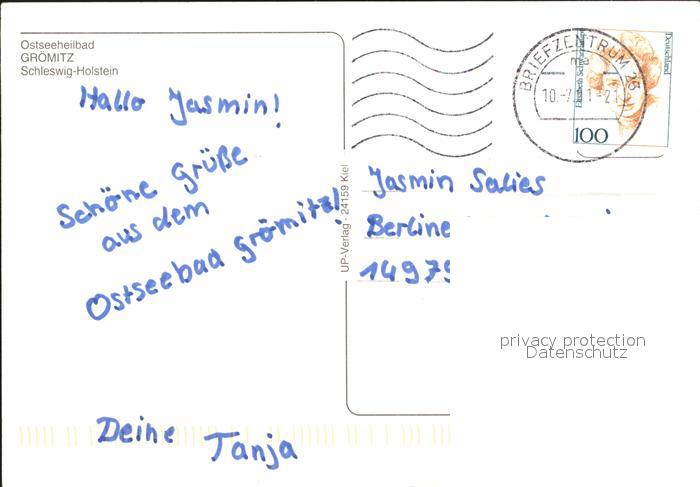 Ostseeheilbad
GRÖMITZ
Schleswig-Holstein
Hallo Jasmin!
Schöne Grüße
aus dem
Ostseebad Grömitz!
Deine Tanja
UP-Verlag · 24159 Kiel
BRIEFZENTRUM 23
ma
Deutschland
100
Jasmin Salies
Berline
14979
privacy protection
Datenschutz